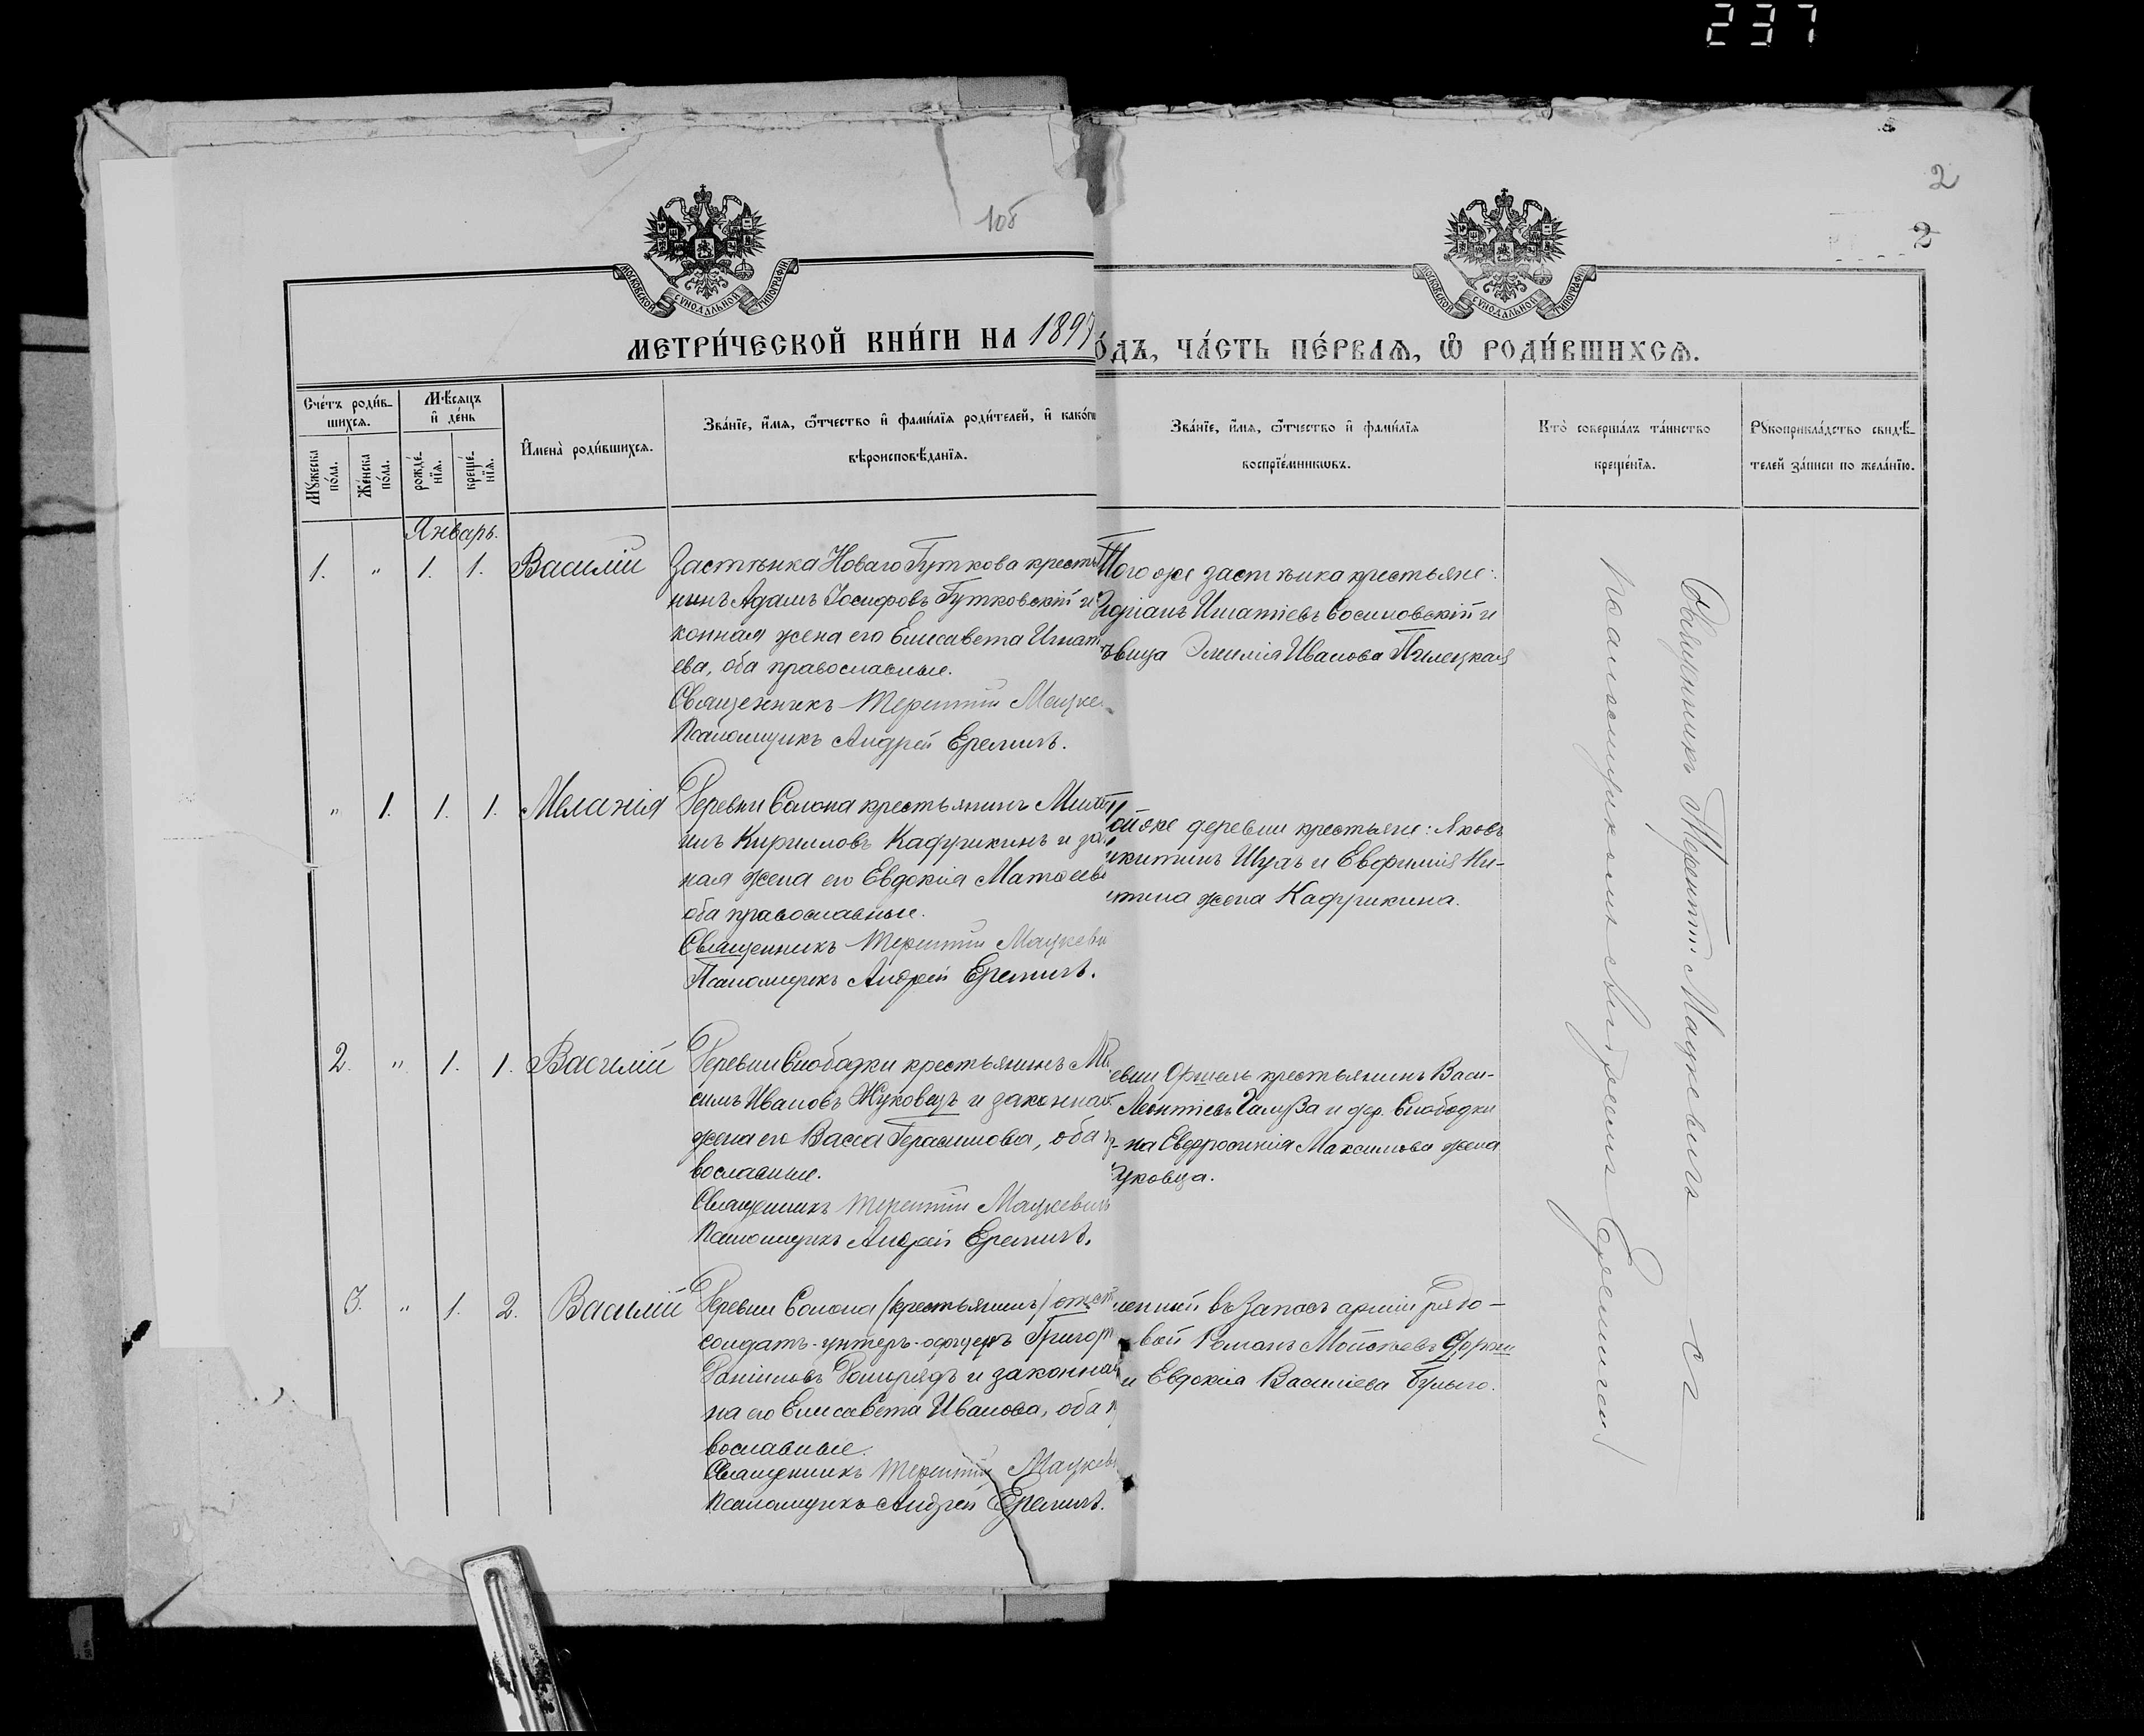 237
2
108
2
МОСКОВСКОЙ СѴНОДАЛЬНОЙ ТИПОГРАФІИ
МОСКОВСКОЙ СѴНОДАЛЬНОЙ ТИПОГРАФІИ
МЕТРИ́ЧЕСКОЙ КНИ́ГИ НА 1897
О́ДЪ, ЧА́СТЬ ПЕ́РВАѦ, Ѽ РОДИ́ВШИХСѦ.
Сче́тъ роди́в-
шихсѧ.
Мꙋ́жеска по́ла.
Же́нска по́ла.
Мѣ́сѧцъ
и҆ де́нь
рожде́-
нїѧ.
креще́-
нїѧ.
И҆мена̀ роди́вшихсѧ.
Зва́нїе, и҆́мѧ, ѻ҆́тчество и҆ фами́лїѧ роди́телей, и҆ како́гѡ
вѣроисповѣ́данїѧ.
Зва́нїе, и҆́мѧ, ѻ҆́тчество и҆ фами́лїѧ
воспрїе́мникѡвъ.
Кто̀ соверша́лъ та́инство
креще́нїѧ.
Рꙋкоприкла́дство свидѣ́-
телей за́писи по жела́нїю.
Январь.
1. " 1. 1. Василій
Застѣнка Новаго Гуткова кресть
нинъ Адамъ Іосифовъ Гутковскій и
конная жена его Елисавета Игнат
ева, оба православные.
Священникъ Терентій Мацке
Псаломщикъ Андрей Еремичъ.
Того же застѣнка крестьяне:
Адріанъ Игнатіевъ Сосиновскій и
ѣвица Эмилія Иванова Пилецкая
" 1. 1. 1. Меланія
Деревни Солона крестьянинъ Миха
илъ Кирилловъ Кафушкинъ и за
ная жена его Евдокія Матѳеева
оба православные.
Священникъ Терентій Мацкеви
Псаломщикъ Андрей Еремичъ.
ой же деревни крестьяне: Яковъ
икитинъ Шухъ и Евфимія Ни-
итина жена Кафушкина.
2. " 1. 1. Василій
Деревни Слободки крестьянинъ Ма
симъ Ивановъ Жуковецъ и законная
жена его Васса Герасимова, оба п
вославные.
Священникъ Терентій Мацкевичъ
Псаломщикъ Андрей Еремичъ.
евни крестьянинъ Васи-
Леонтіевъ и дер. Слободки
на Евфросинія Максимова жена
уковца.
3. " 1. 2. Василій
Деревни Солона (крестьянинъ) отст
солдатъ-унтеръ-офицеръ Григор
Даніиловъ и законная
на его Елисавета Иванова, оба п
вославные.
Священникъ Терентій Мацкеви
Псаломщикъ Андрей Еремичъ.
ленный въ запасъ арміи рядо-
вой Романъ Моисѣевъ
и Евдокія Василіева Булыго.
Священникъ Терентій Мацкевичъ съ
псаломщикомъ Андреемъ Еремичемъ